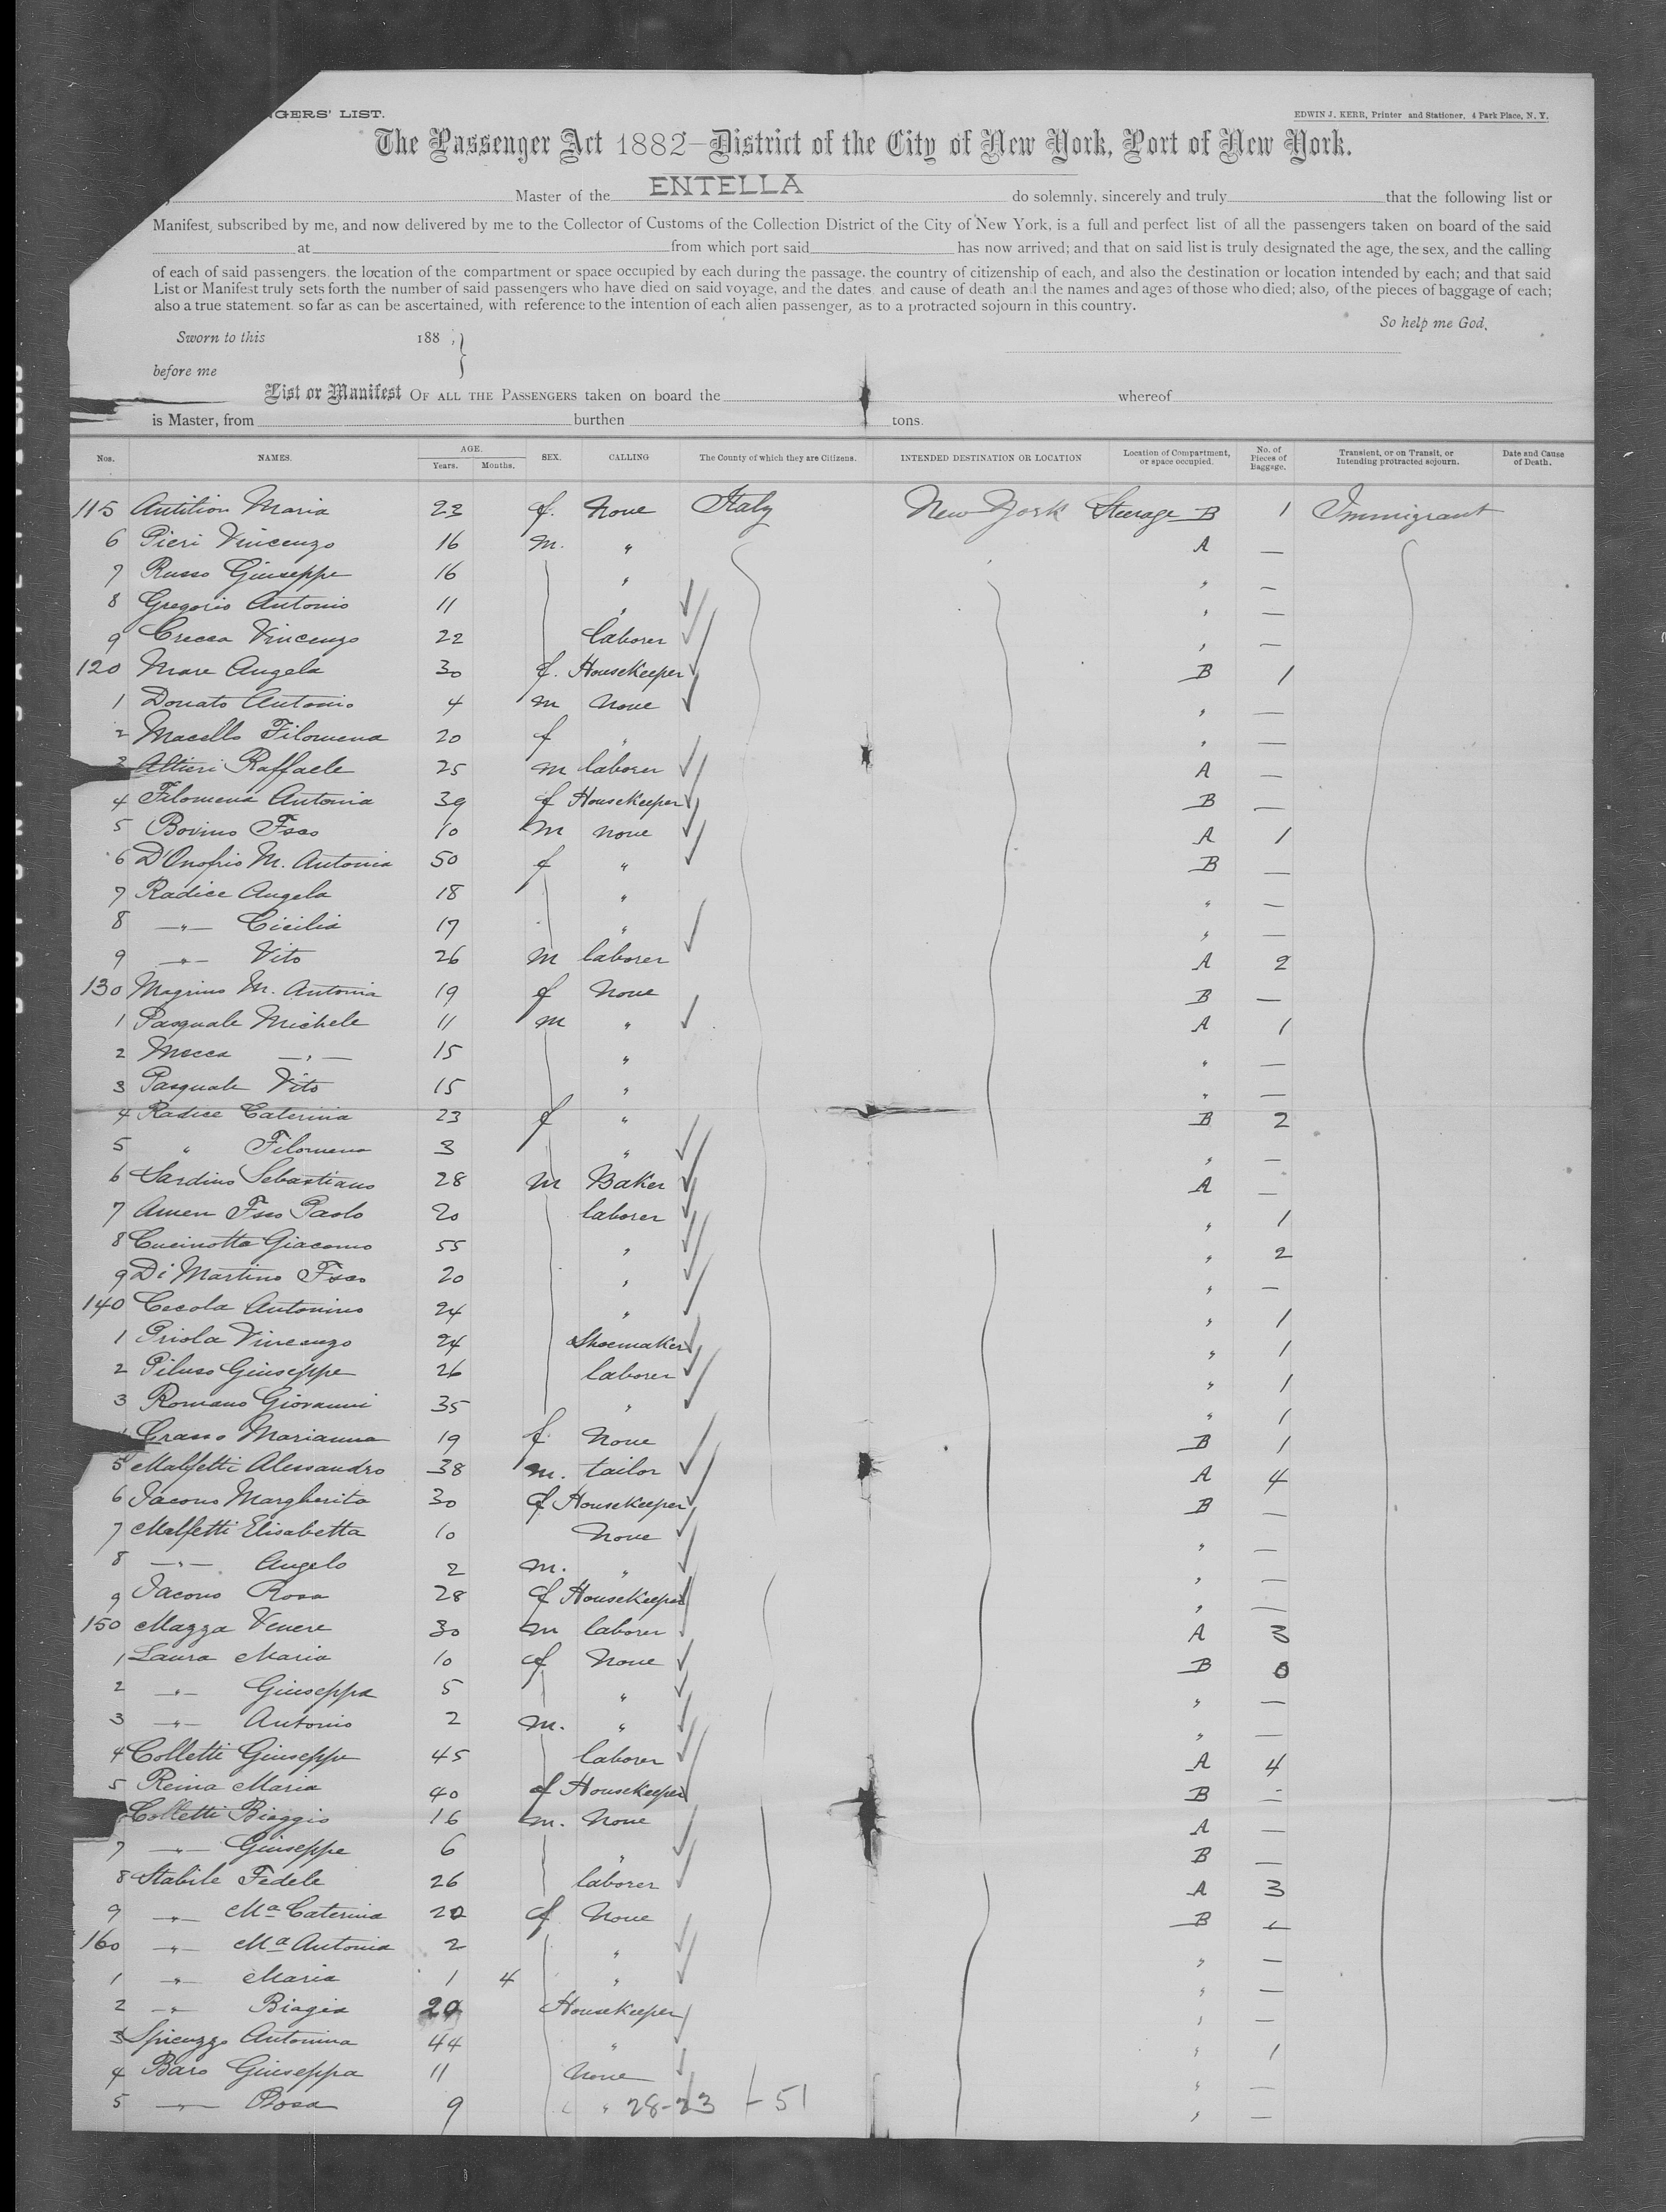 NGERS' LIST.
EDWIN J. KERR, Printer and Stationer, 4 Park Place, N. Y.
The Passenger Act 1882—District of the City of New York, Port of New York.
Master of the ENTELLA do solemnly, sincerely and truly that the following list or
Manifest, subscribed by me, and now delivered by me to the Collector of Customs of the Collection District of the City of New York, is a full and perfect list of all the passengers taken on board of the said
at from which port said has now arrived; and that on said list is truly designated the age, the sex, and the calling
of each of said passengers. the location of the compartment or space occupied by each during the passage. the country of citizenship of each, and also the destination or location intended by each; and that said
List or Manifest truly sets forth the number of said passengers who have died on said voyage, and the dates and cause of death and the names and ages of those who died; also, of the pieces of baggage of each;
also a true statement. so far as can be ascertained, with reference to the intention of each alien passenger, as to a protracted sojourn in this country.
So help me God,
Sworn to this 188 ;
before me
List or Manifest OF ALL THE PASSENGERS taken on board the whereof
is Master, from burthen tons.
Nos. NAMES. AGE. Years. Months. SEX. CALLING The County of which they are Citizens. INTENDED DESTINATION OR LOCATION Location of Compartment, or space occupied. No. of Pieces of Baggage. Transient, or on Transit, or Intending protracted sojourn. Date and Cause of Death.
115 Maria 23 f. None Italy New York Steerage B 1 Immigrant
6 Pieri Vincenzo 16 m. " A —
7 Russo Giuseppe 16 " " —
8 Gregorio Antonio 11 " " —
9 Crecca Vincenzo 22 laborer " —
120 Mare Angela 30 f. Housekeeper B 1
1 Donato Antonio 4 m None " —
2 Macello Filomena 20 f " " —
3 Altieri Raffaele 25 m laborer A —
4 Filomena Antonia 39 f Housekeeper B —
5 Bovino Fsco 10 m none A 1
6 D'Onofrio M. Antonia 50 f " B —
7 Radice Angela 18 " " —
8 —"— Cicilia 17 " " —
9 —"— Vito 26 m laborer A 2
130 Magrino M. Antonia 19 f None B —
1 Pasquale Michele 11 m " A 1
2 Mecca —"— 15 " " —
3 Pasquale Vito 15 " " —
4 Radice Caterina 23 f " B 2
5 " Filomena 3 " " —
6 Sardino Sebastiano 28 m Baker A —
7 Amen Fsco Paolo 20 laborer " 1
8 Cucinotta Giacomo 55 " " 2
9 Di Martino Fsco 20 " " —
140 Cecola Antonino 24 " " 1
1 Priola Vincenzo 24 Shoemaker " 1
2 Piluso Giuseppe 26 laborer " 1
3 Romano Giovanni 35 " " 1
Crasso Marianna 19 f None B 1
5 Malfetti Alessandro 38 m. tailor A 4
6 Jacono Margherita 30 f Housekeeper B —
7 Malfetti Elisabetta 10 None " —
8 —"— Angelo 2 m. " " —
9 Jacono Rosa 28 f Housekeeper " —
150 Mazza Venere 30 m laborer A 3
1 Laura Maria 10 f None B 0
2 —"— Giuseppa 5 " " —
3 —"— Antonio 2 m. " " —
4 Colletti Giuseppe 45 laborer A 4
5 Reina Maria 40 f Housekeeper B —
Colletti Biaggio 16 m. None A —
7 —"— Giuseppe 6 " B —
8 Stabile Fedele 26 laborer A 3
9 —"— Ma Caterina 22 f None B —
160 —"— Ma Antonia 2 " " —
1 —"— Maria 1 4 " " —
2 —"— Biagia 20 Housekeeper " —
3 Spicuzzo Antonina 44 " " 1
4 Baro Giuseppa 11 None " —
5 —"— Rosa 9 " " —
28-23 51